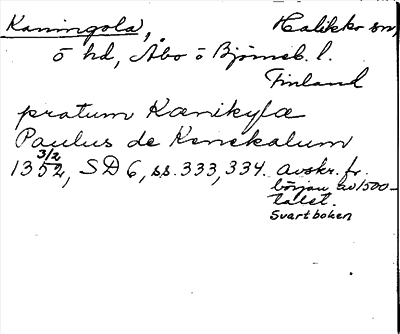 Kaningola, Halikko sn,
ö hd, Åbo ö Björneb. l.
Finland
pratum Kænikylæ
Paulus de Kenekalum
13 3/2 52, SD 6, ss. 333, 334. avskr. fr.
början av 1500-
talet.
Svartboken